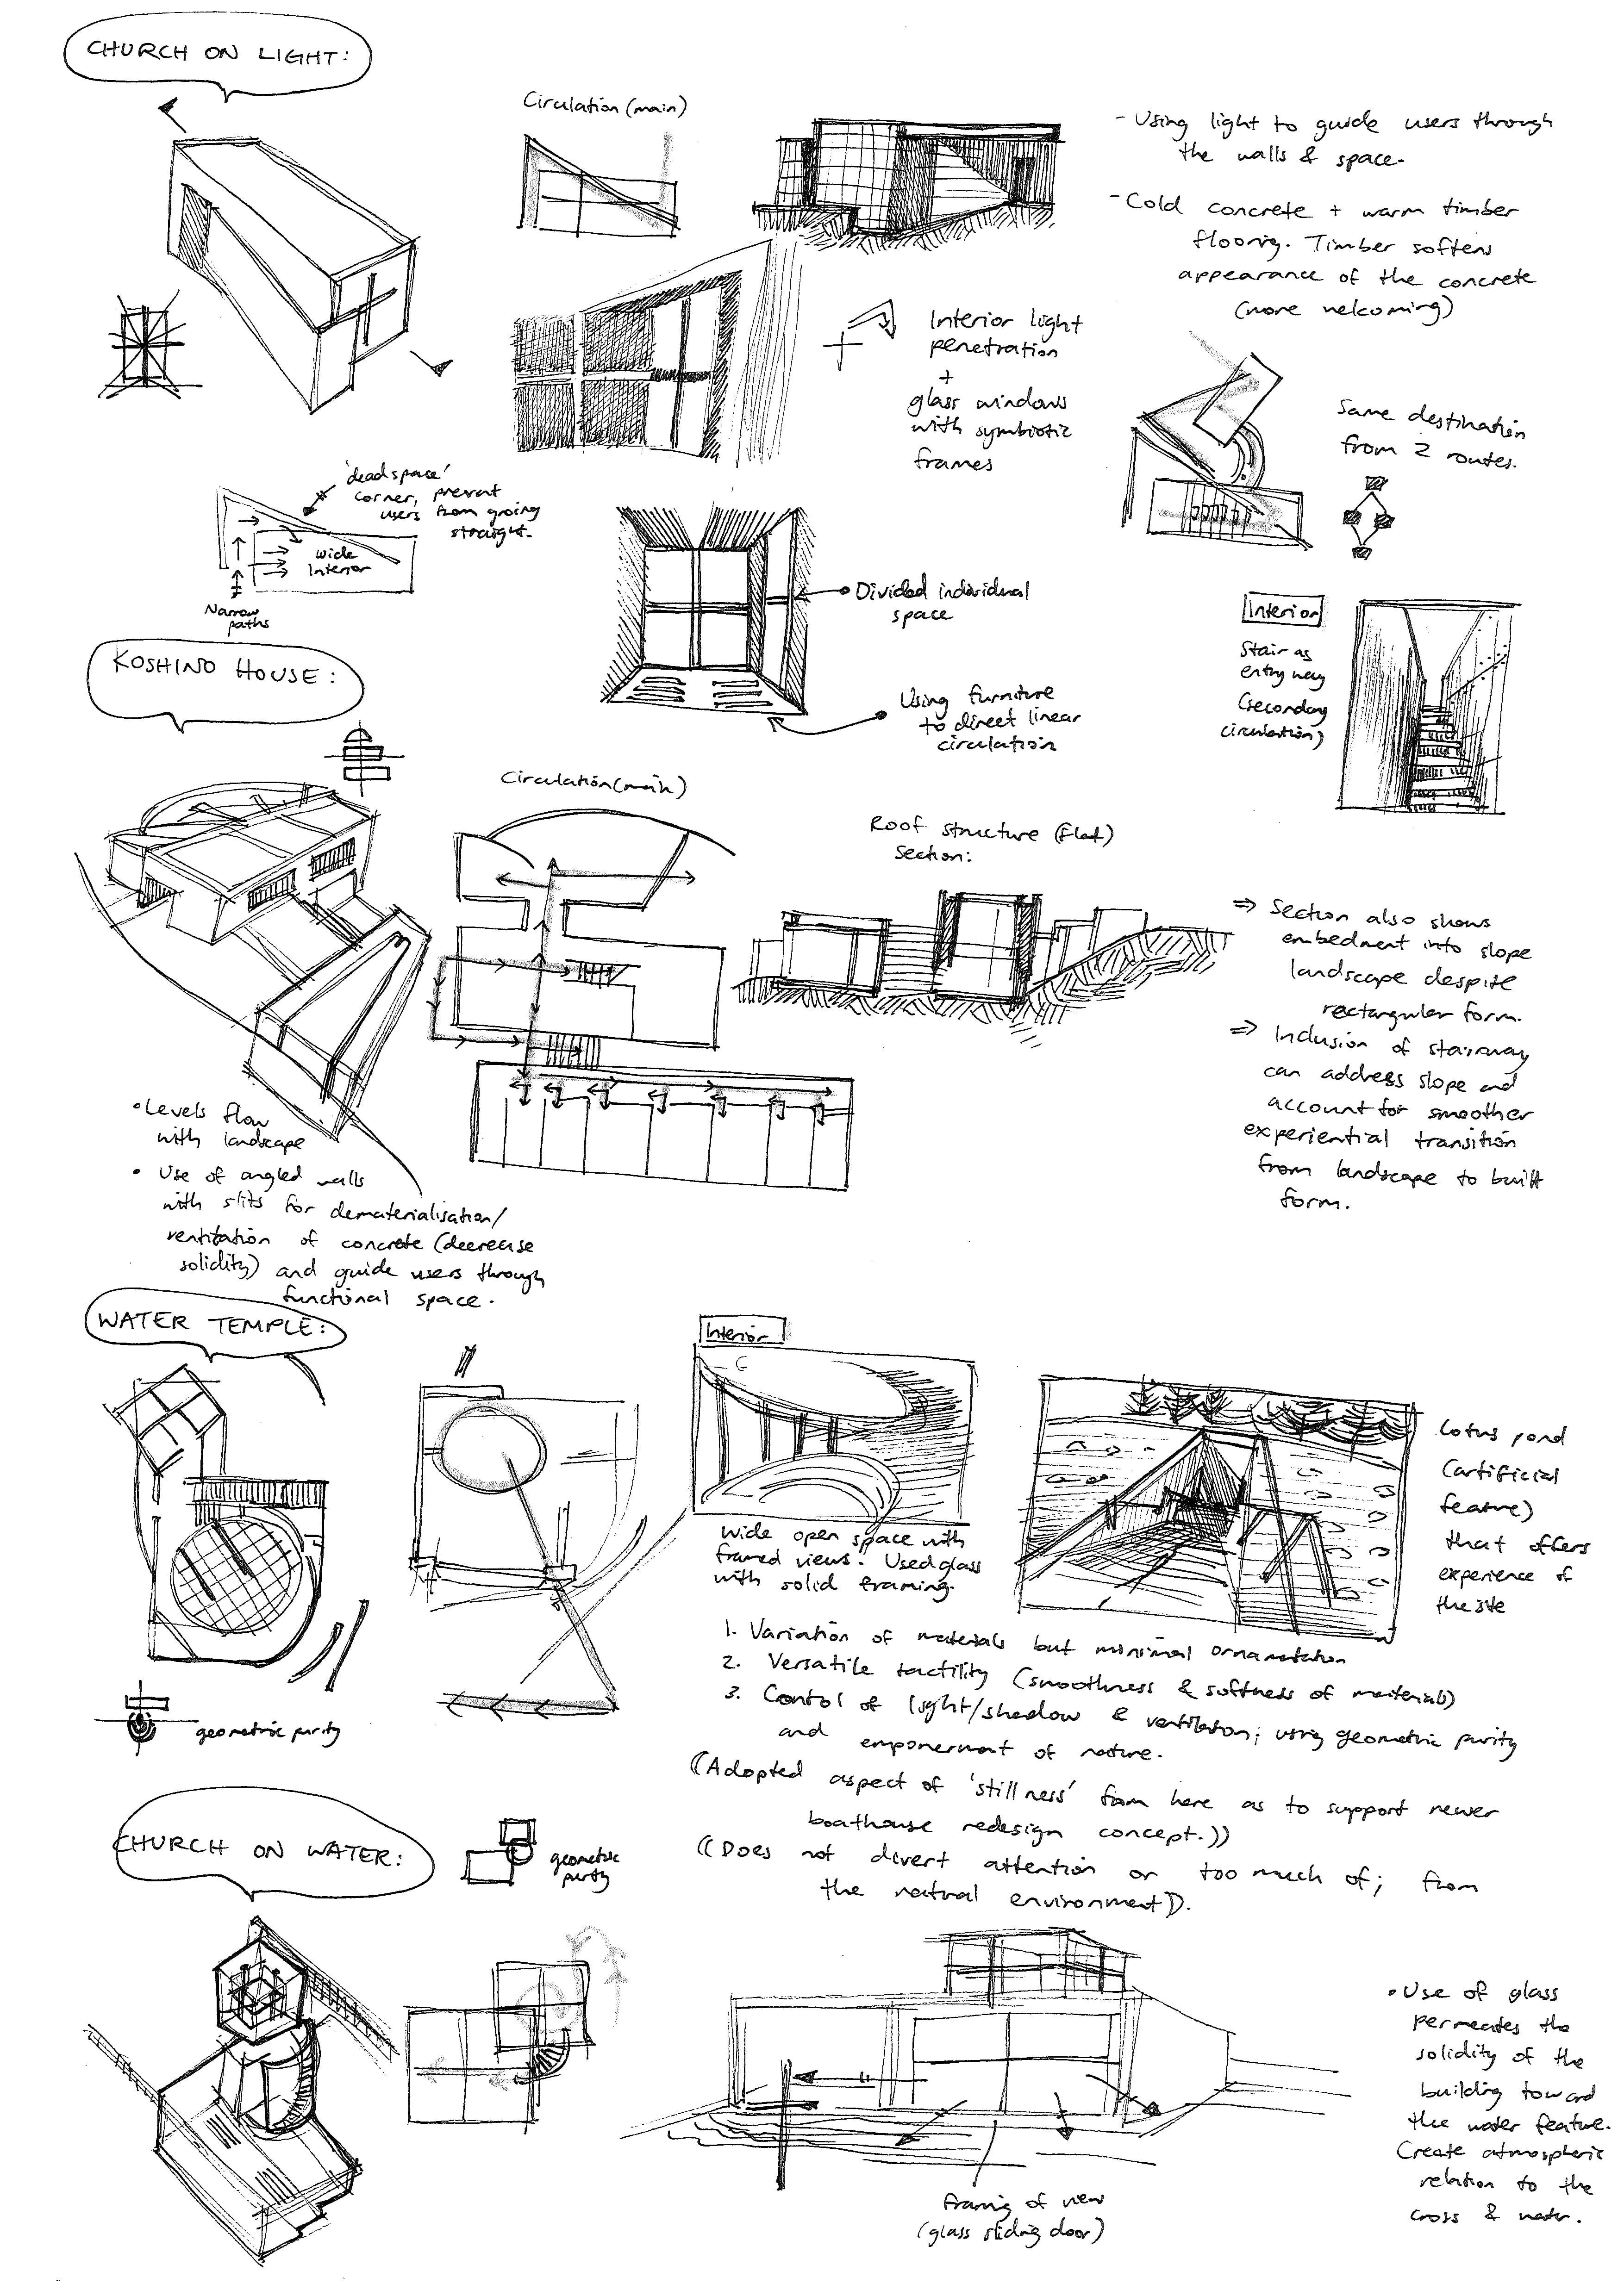 CHURCH ON LIGHT:
Circulation (main)
- Using light to guide users through
the walls & space.
- Cold concrete + warm timber
flooring. Timber softens
appearance of the concrete
(more welcoming)
Interior light
penetration
+
glass windows
with symbiotic
frames
Same destination
from 2 routes.
'dead space'
corner, prevent
users from going
straight.
Wide
Interior
Narrow
paths
Divided individual
space
Using furniture
to direct linear
circulation
Interior
Stair as
entry way
(seconday
circulation)
KOSHINO HOUSE:
Circulation (main)
Roof structure (flat)
Section:
⇒ Section also shows
embedment into slope
landscape despite
rectangular form.
⇒ Inclusion of stairway
can address slope and
account for smoother
experiential transition
from landscape to built
form.
• Levels flow
with landscape
• Use of angled walls
with slits for dematerialisation/
ventilation of concrete (decrease
solidity) and guide users through
functional space.
WATER TEMPLE:
Interior
Wide open space with
framed views. Used glass
with solid framing.
Lotus pond
(artificial
feature)
that offers
experience of
the site
geometric purity
1. Variation of materials but minimal ornamentation
2. Versatile tactility (smoothness & softness of materials)
3. Control of light/shadow & ventilation; using geometric purity
and empowerment of nature.
((Adopted aspect of 'stillness' from here as to support newer
boathouse redesign concept.))
((Does not divert attention or too much of; from
the natural environment)).
CHURCH ON WATER:
geometric
purity
• Use of glass
permeates the
solidity of the
building toward
the water feature.
Create atmospheric
relation to the
cross & water.
framing of view
(glass sliding door)